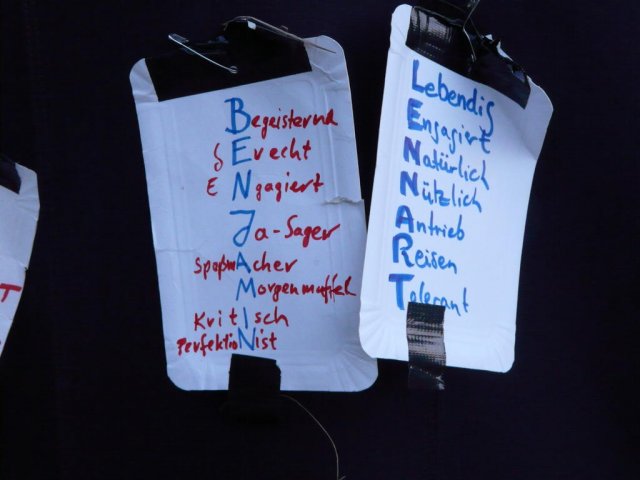 Begeisternd
gErecht
ENgagiert
Ja-Sager
SpaßmAcher
Morgenmuffel
KritIsch
PerfektioNist
Lebendig
Engagiert
Natürlich
Nützlich
Antrieb
Reisen
Tolerant
T